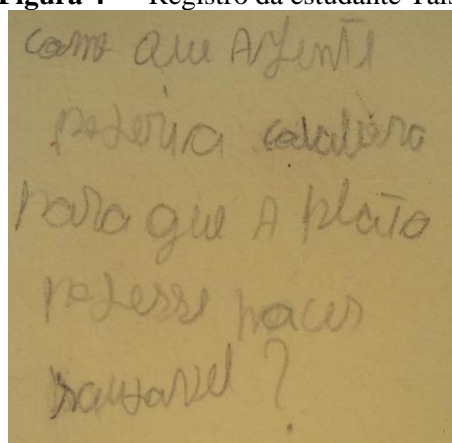 Figura 4 Registro da estudante Taís
como que A gente
poderia colabora
para que A plãto
podesse nacer
sauvavel ?